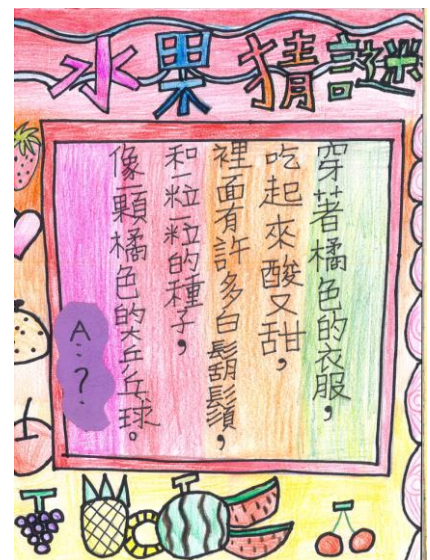 水果猜謎
穿著橘色的衣服，
吃起來酸又甜，
裡面有許多白鬍鬚，
和一粒一粒的種子，
像一顆橘色的大乒乓球。
A：？